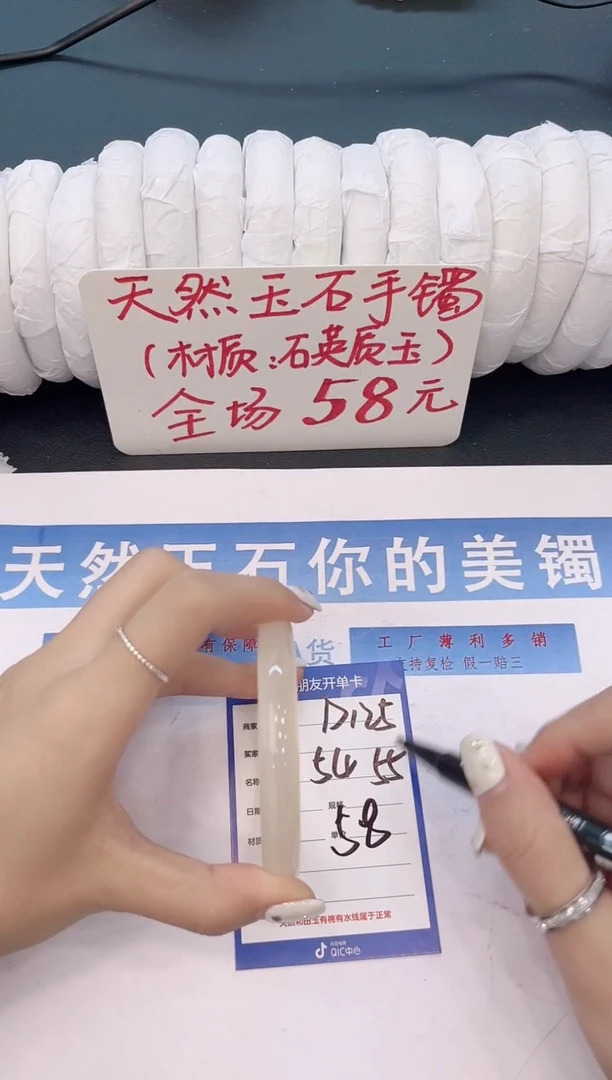 天然玉石手镯
（材质：石英质玉）
全场 58元
天然玉石你的美镯
有保障
货
工厂薄利多销
支持复检 假一赔三
朋友开单卡
商家
D125
买家
54 55
名称
日期
规格
58
材质
单价
天然和田玉有棉有水线属于正常
抖音电商
QIC中心